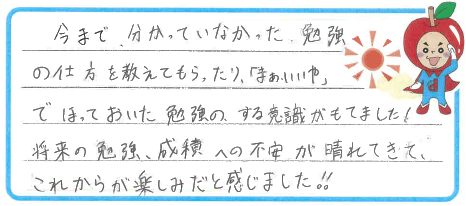 今まで、分かっていなかった、勉強
の仕方を教えてもらったり、「まぁ、いいや」
でほっておいた勉強の、する意識がもてました！
将来の勉強、成績への不安が晴れてきて、
これからが楽しみだと感じました!!